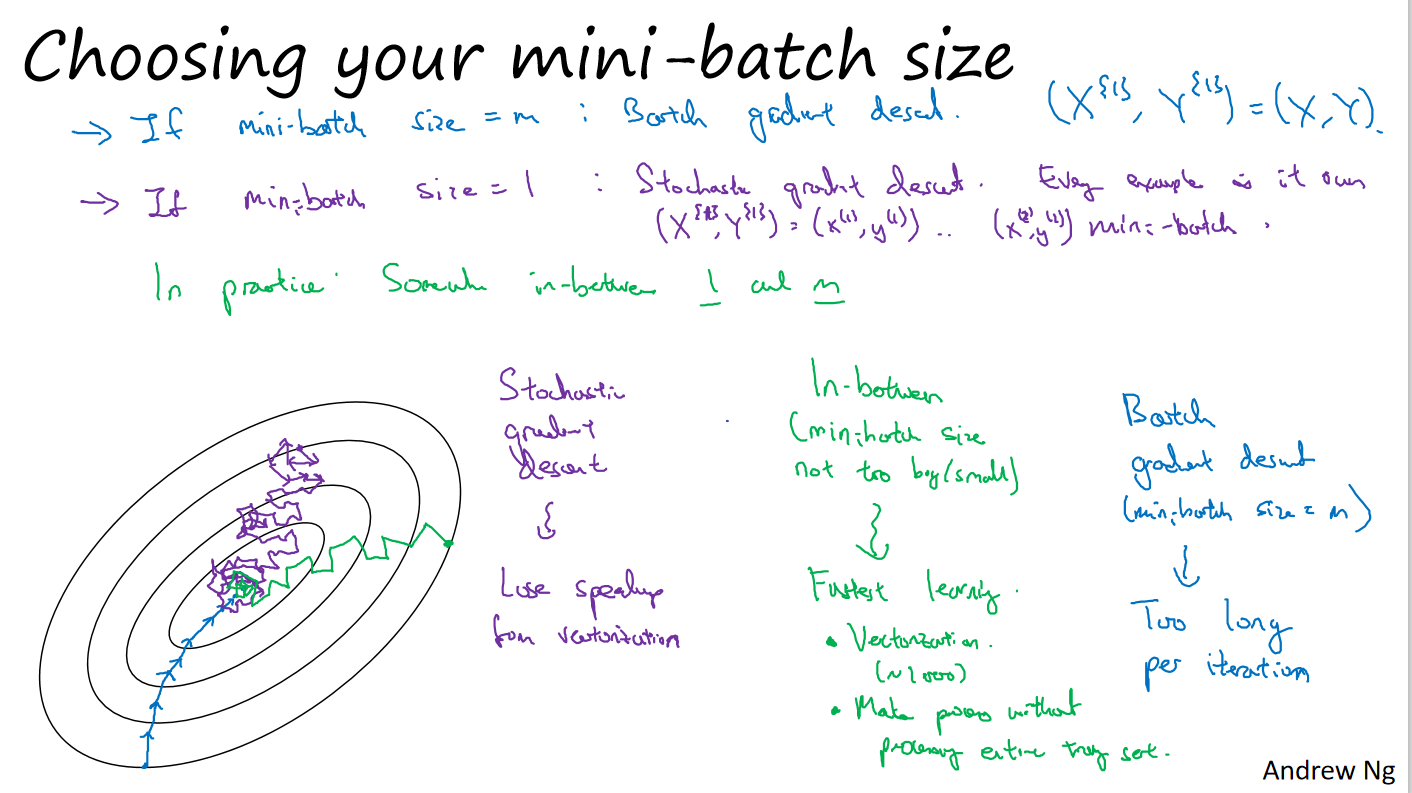 Choosing your mini-batch size
→ If mini-batch size = m : Batch gradient descent. (X^{1}, Y^{1}) = (X, Y).
→ If mini-batch size = 1 : Stochastic gradient descent. Every example is it own
(X^{1}, Y^{1}) = (x^(1), y^(1)) .. (x^(2), y^(2)) mini-batch.
In practice: Somewhere in-between 1 and m
Stochastic
gradient
descent
Lose speedup
from vectorization
In-between
(mini-batch size
not too big/small)
Fastest learning.
• Vectorization.
(~1000)
• Make progress without
processing entire training set.
Batch
gradient descent
(mini-batch size = m)
Too long
per iteration
Andrew Ng